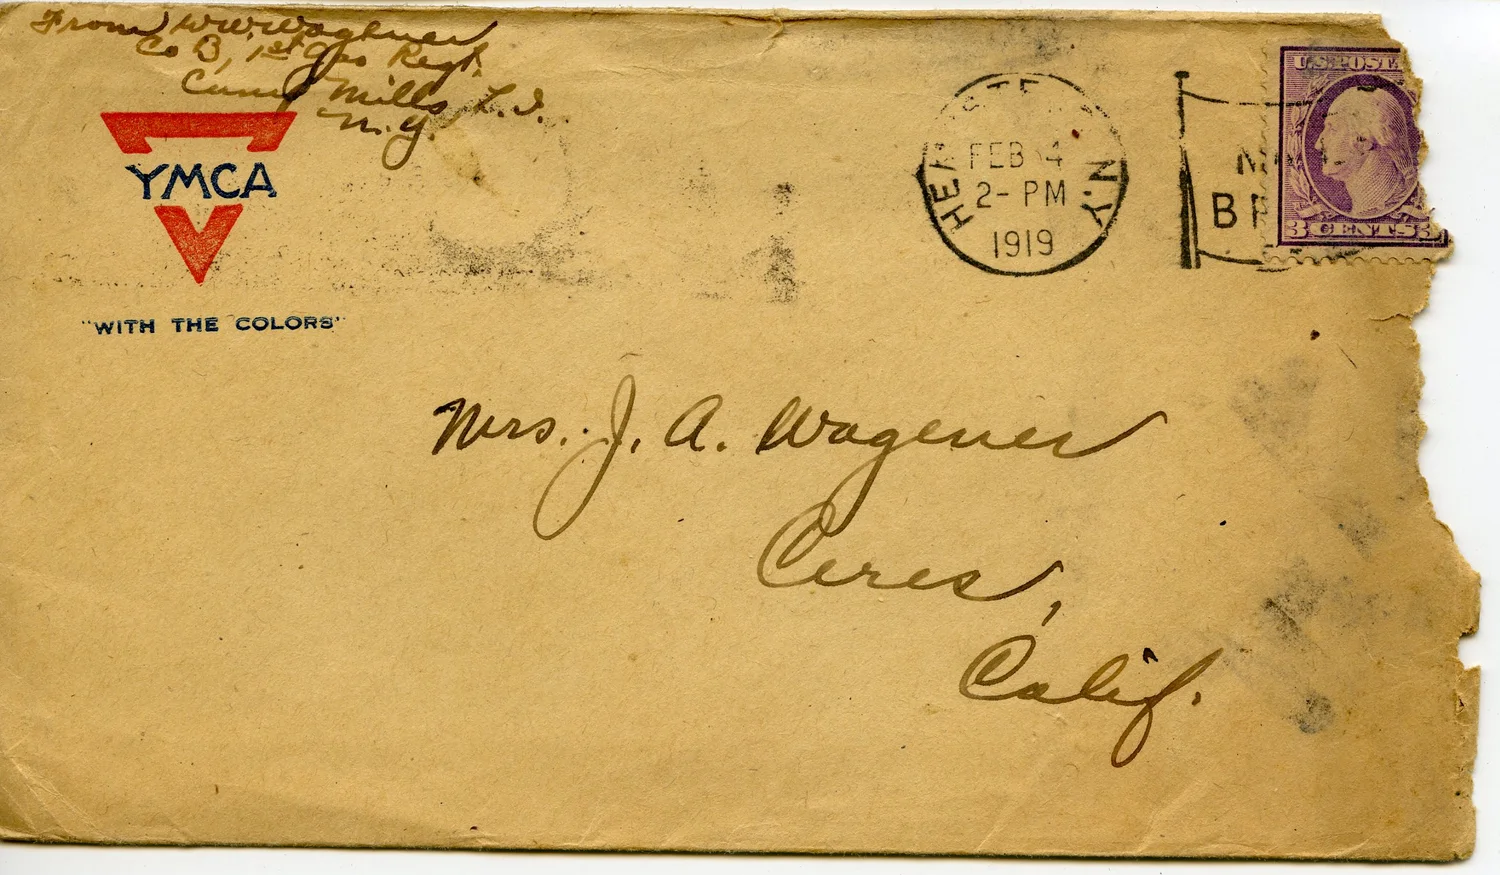 From W.W. Wagener
Co B, 1st Gas Regt.
Camp Mills, L.I.
N.Y.
YMCA
"WITH THE COLORS"
N.Y.
FEB 4
2- PM
1919
U.S. POST
3 CENTS 3
Mrs. J. A. Wagener
Ceres,
Calif.